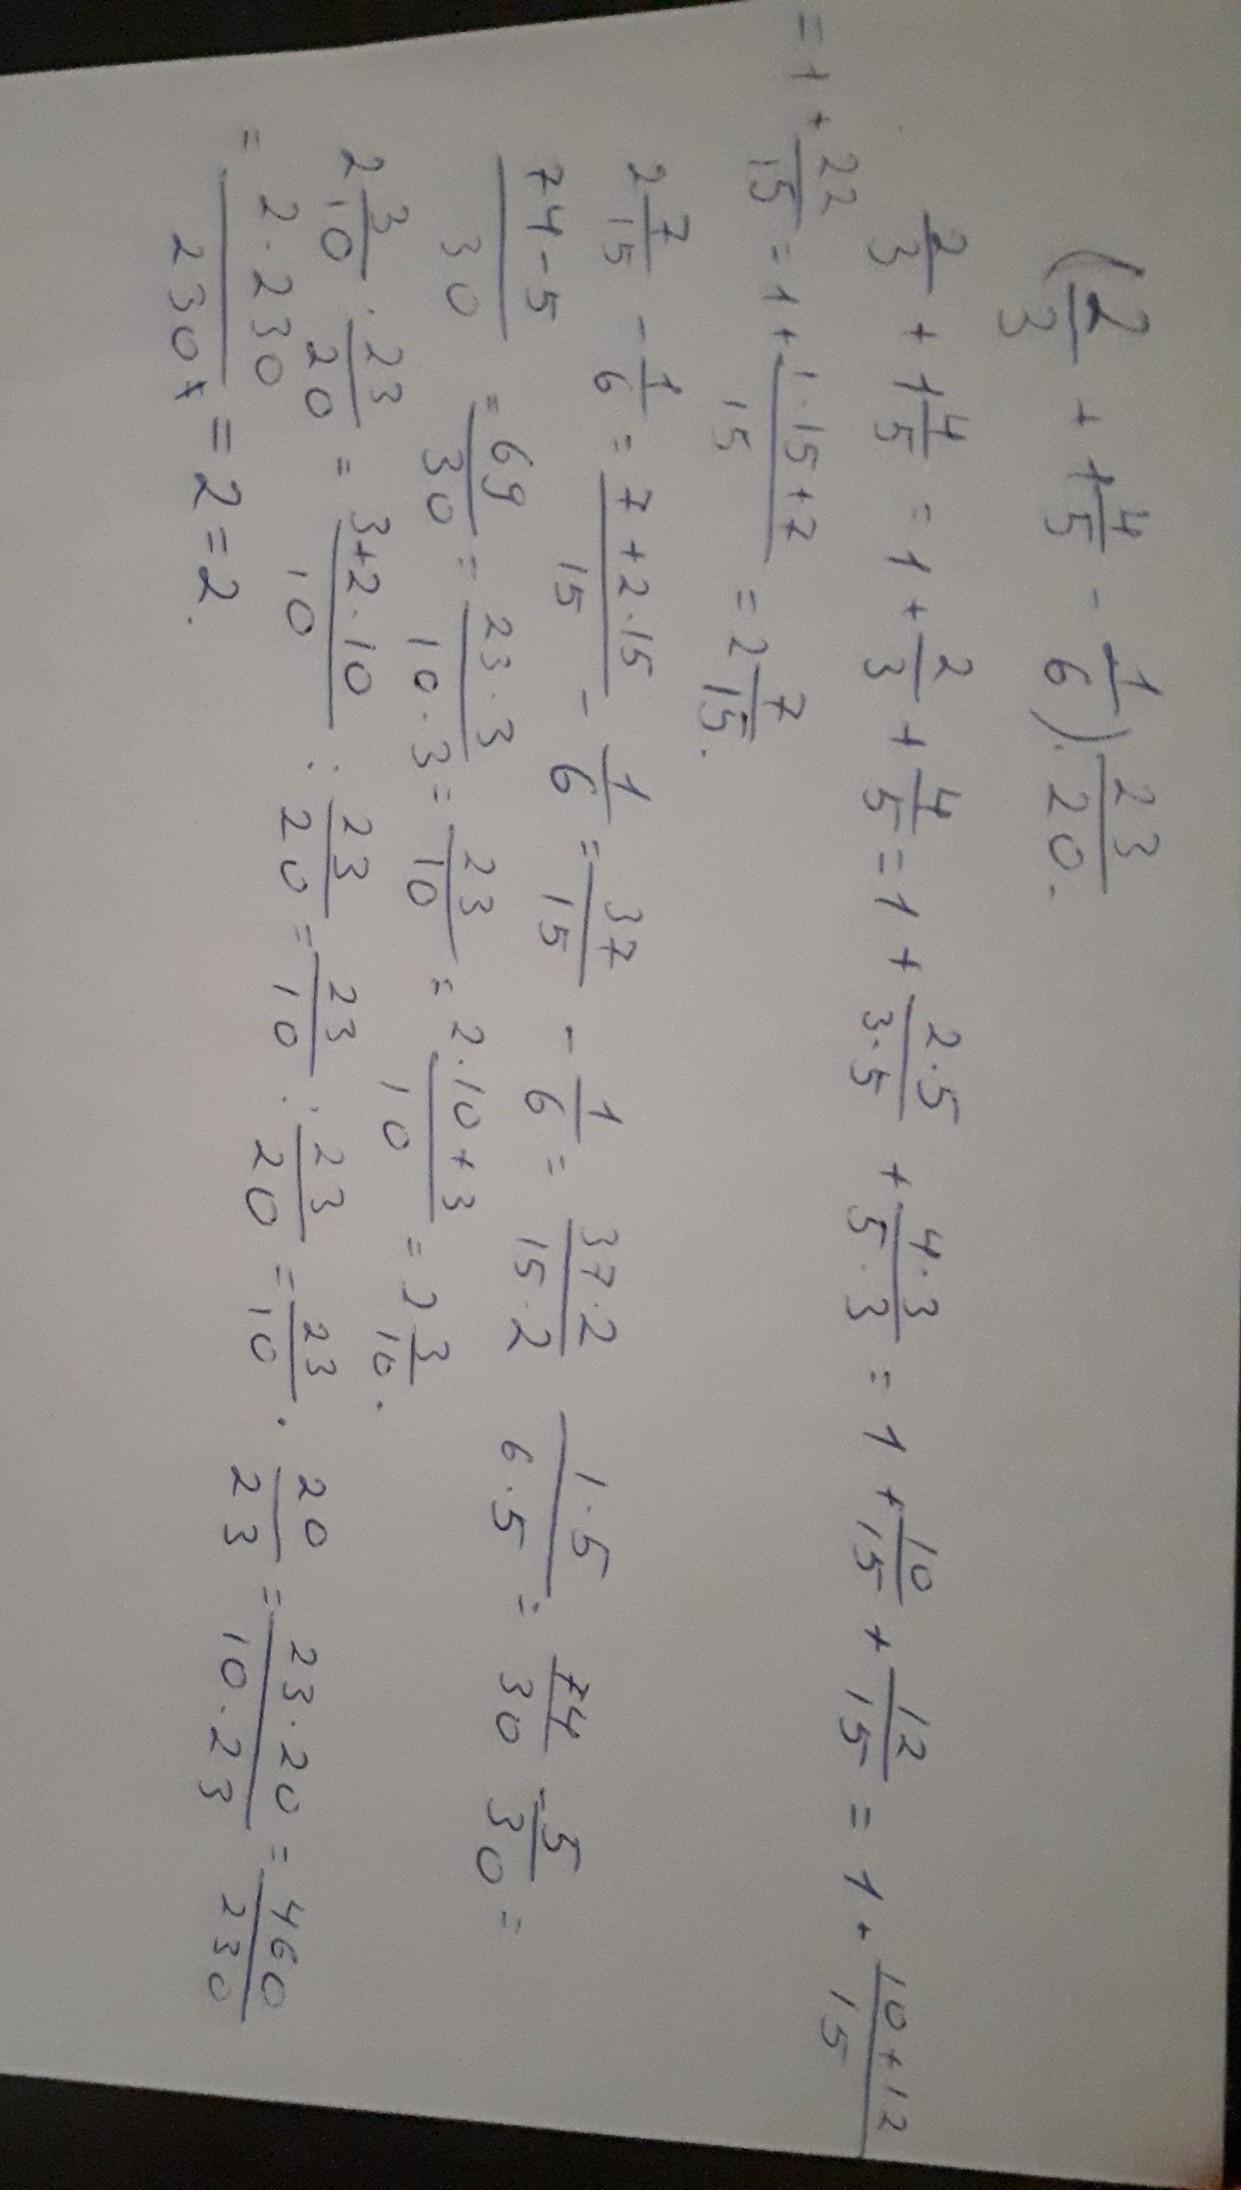 (2/3 + 1 4/5 - 1/6) : 23/20.
2/3 + 1 4/5 = 1 + 2/3 + 4/5 = 1 + 2·5/3·5 + 4·3/5·3 = 1 + 10/15 + 12/15 = 1 + 10+12/15
= 1 + 22/15 = 1 + 1·15+7/15 = 2 7/15.
2 7/15 - 1/6 = 7+2·15/15 - 1/6 = 37/15 - 1/6 = 37·2/15·2 1·5/6·5 = 74/30 - 5/30 =
74-5/30 = 69/30 = 23·3/10·3 = 23/10 = 2·10+3/10 = 2 3/10.
2 3/10 : 23/20 = 3+2·10/10 : 23/20 = 23/10 : 23/20 = 23/10 · 20/23 = 23·20/10·23 = 460/230
= 2·230/230 = 2 = 2.